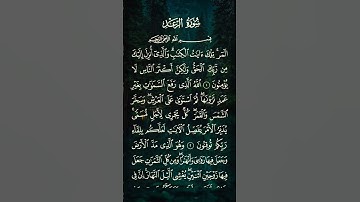 سُورَةُ الرَّعْدِ
بِسْمِ اللَّهِ الرَّحْمَٰنِ الرَّحِيمِ
الٓمٓر ۚ تِلْكَ ءَايَٰتُ ٱلْكِتَٰبِ ۗ وَٱلَّذِىٓ أُنزِلَ إِلَيْكَ
مِن رَّبِّكَ ٱلْحَقُّ وَلَٰكِنَّ أَكْثَرَ ٱلنَّاسِ لَا
يُؤْمِنُونَ ١ ٱللَّهُ ٱلَّذِى رَفَعَ ٱلسَّمَٰوَٰتِ بِغَيْرِ
عَمَدٍ تَرَوْنَهَا ۖ ثُمَّ ٱسْتَوَىٰ عَلَى ٱلْعَرْشِ ۖ وَسَخَّرَ
ٱلشَّمْسَ وَٱلْقَمَرَ ۖ كُلٌّ يَجْرِى لِأَجَلٍ مُّسَمًّى ۚ
يُدَبِّرُ ٱلْأَمْرَ يُفَصِّلُ ٱلْءَايَٰتِ لَعَلَّكُم بِلِقَآءِ
رَبِّكُمْ تُوقِنُونَ ٢ وَهُوَ ٱلَّذِى مَدَّ ٱلْأَرْضَ
وَجَعَلَ فِيهَا رَوَٰسِىَ وَأَنْهَٰرًا ۖ وَمِن كُلِّ ٱلثَّمَرَٰتِ جَعَلَ
فِيهَا زَوْجَيْنِ ٱثْنَيْنِ ۖ يُغْشِى ٱلَّيْلَ ٱلنَّهَارَ ۚ إِنَّ فِى